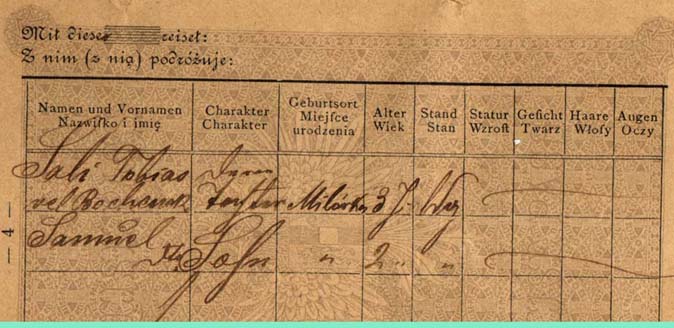 Mit dieser reiset:
Z nim (z nią) podróżuje:
Namen und Vornamen
Nazwiſko i imię
Charakter
Charakter
Geburtsort
Miejſce
urodzenia
Alter
Wiek
Stand
Stan
Statur
Wzroſt
Geſicht
Twarz
Haare
Włoſy
Augen
Oczy
Sali Tobias
vel Bochenek Tochter 3 J.
Samuel
Sohn " 2 " "
— 4 —